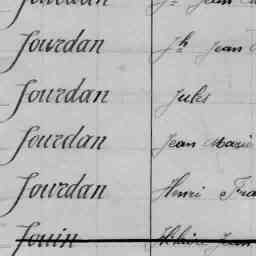 Jourdan Jh Jean
Jourdan Jules
Jourdan Jean Marie
Jourdan Henri Fra
Jouin Jean